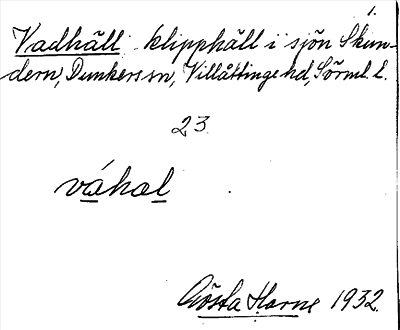 1.
Vadhäll klipphäll i sjön Skun-
dern, Dunkers sn, Villåttinge hd, Sörml. l.
23
váhal
Gösta Harne 1932.